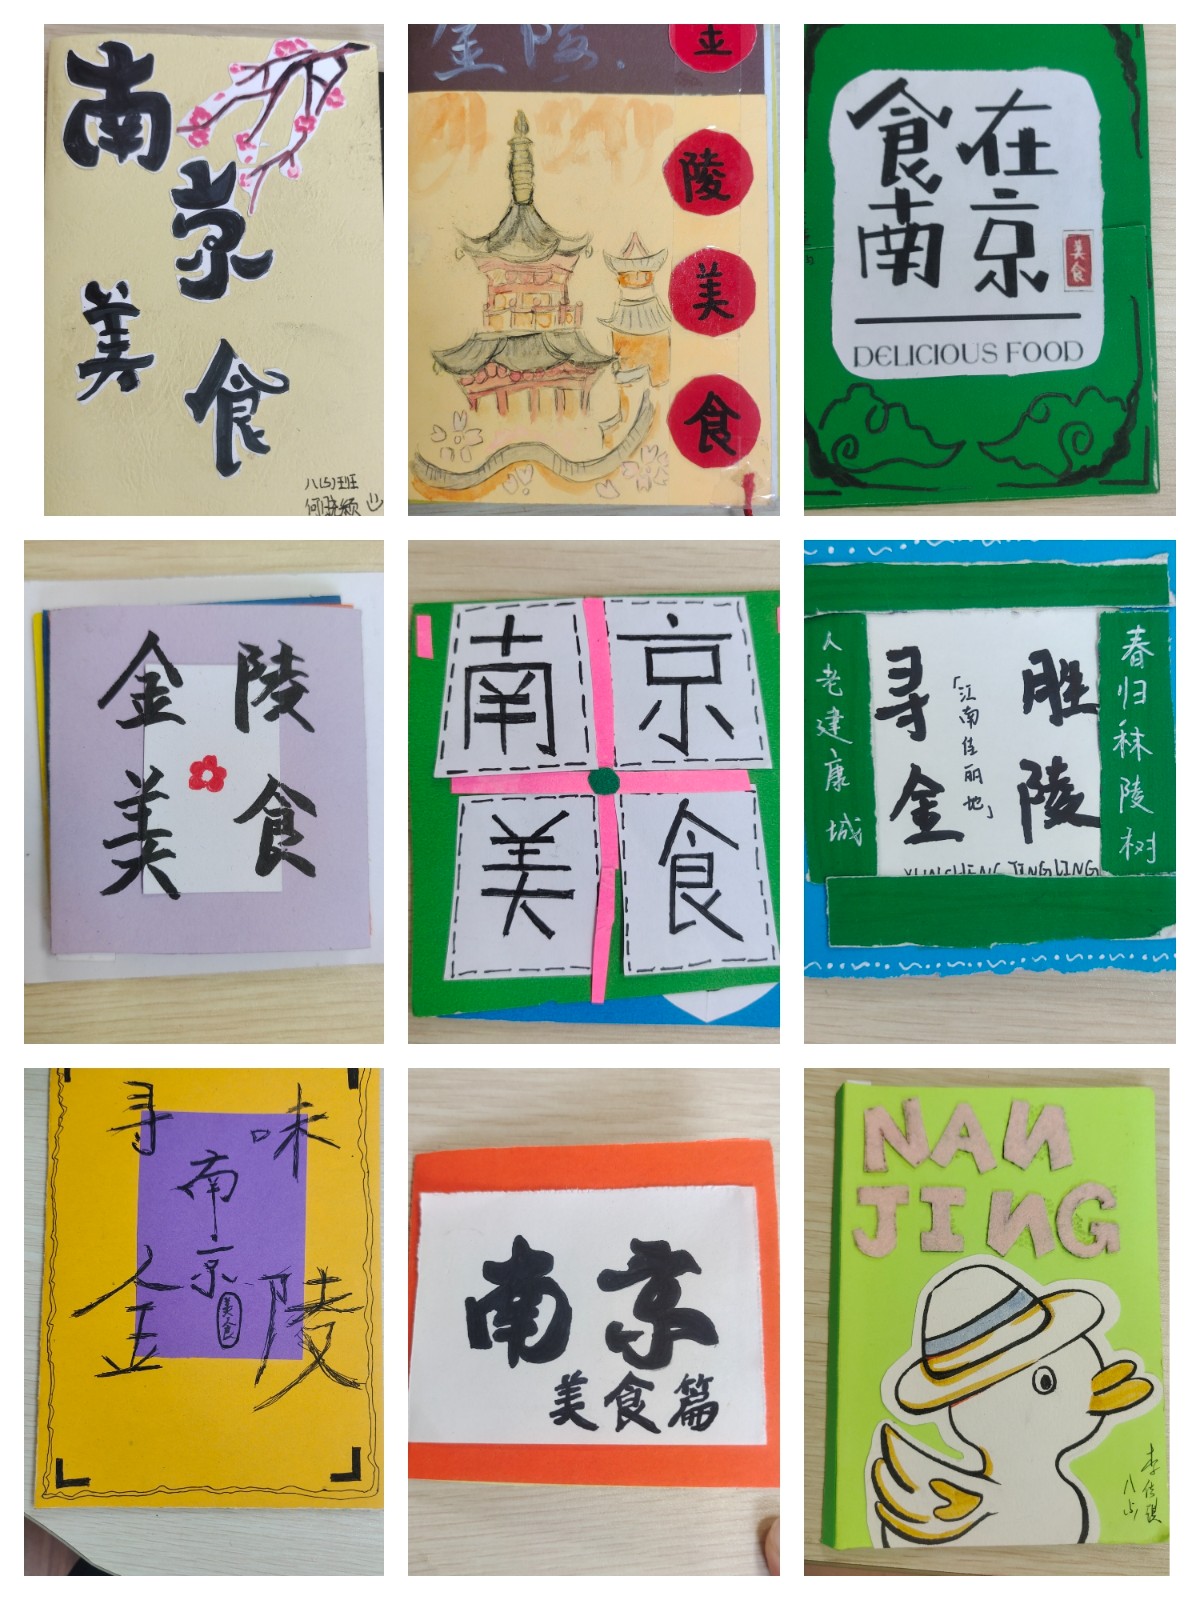 南
京
美
食
八(5)班
金陵
金
陵
美
食
食在
南京
美食
DELICIOUS FOOD
金陵
美食
南京
美食
寻胜
金陵
「江南佳丽地」
人老建康城
春归秣陵树
寻味
金陵
南京
美食
南京
美食篇
NAN
JING
八(5)